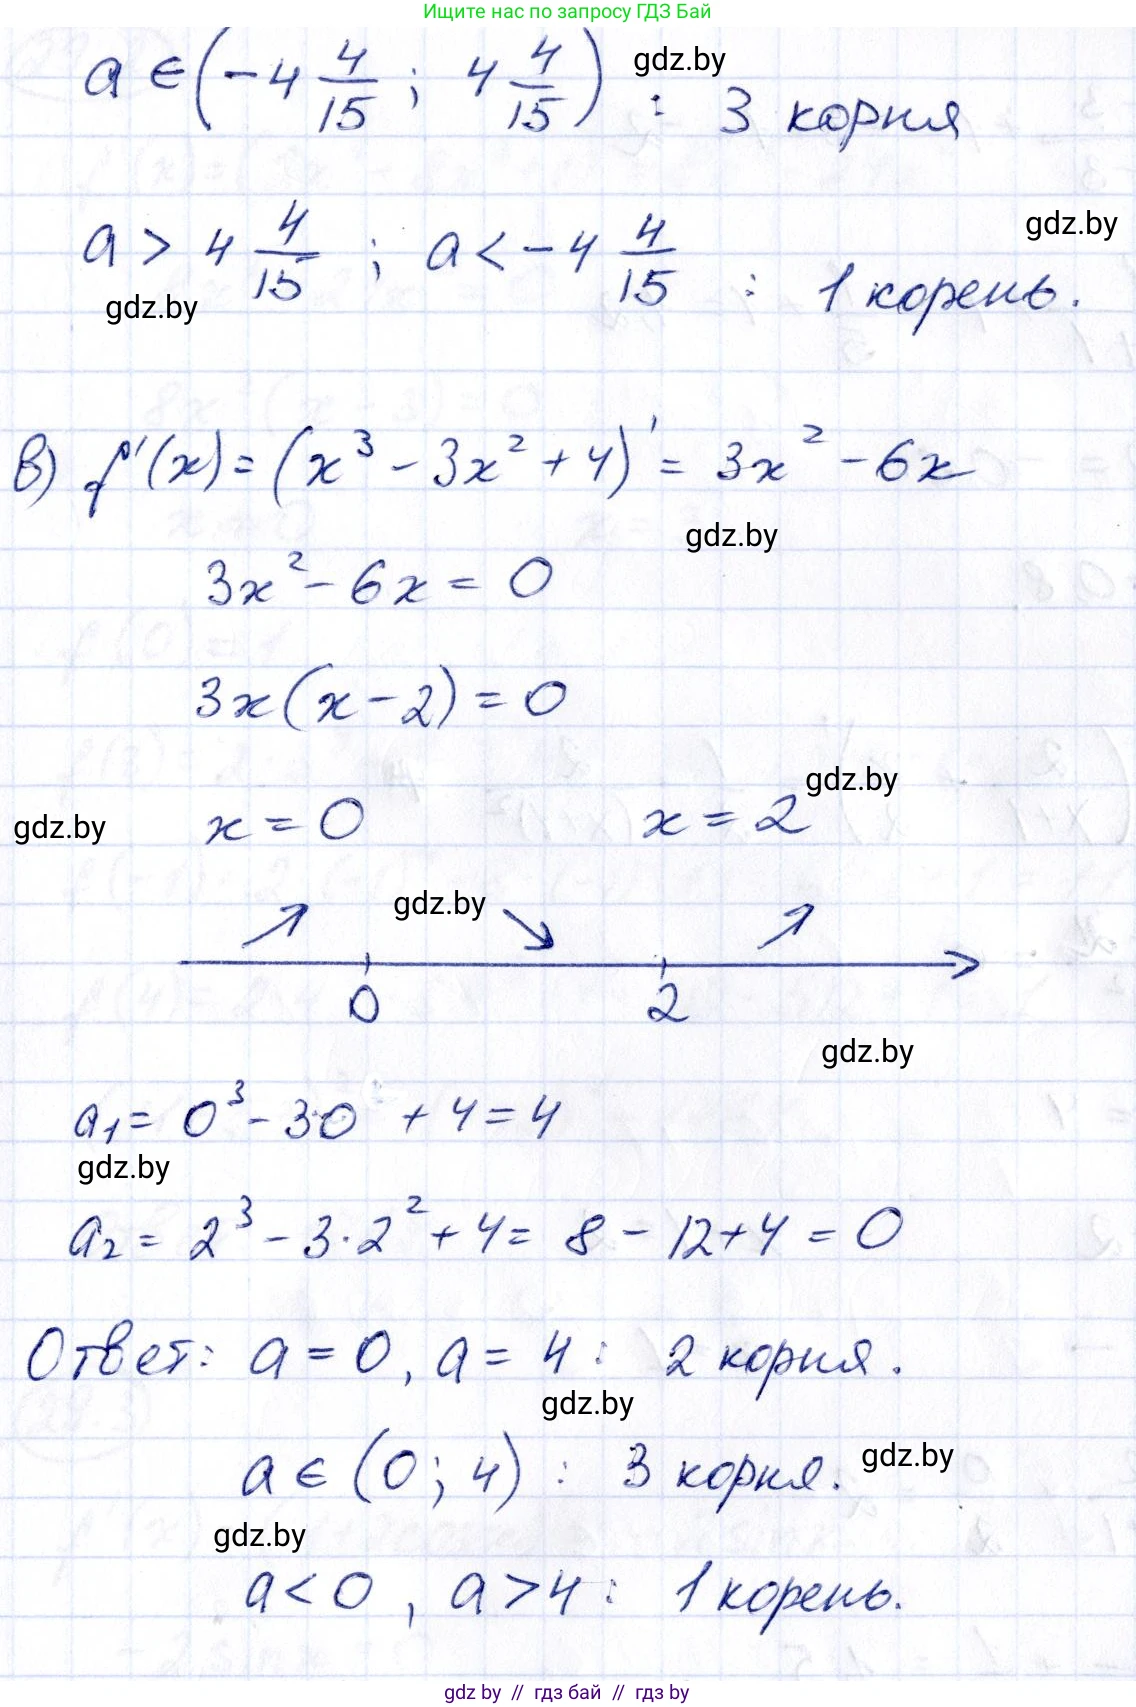 Ищите нас по запросу ГДЗ Бай
a ∈ (-4 4/15 ; 4 4/15) : 3 корня
gdz.by
gdz.by
a > 4 4/15 ; a < -4 4/15 : 1 корень.
gdz.by
в) f'(x) = (x³ - 3x² + 4)' = 3x² - 6x
gdz.by
3x² - 6x = 0
3x(x - 2) = 0
gdz.by
gdz.by
x = 0 x = 2
gdz.by
0 2
gdz.by
a₁ = 0³ - 3·0 + 4 = 4
gdz.by
a₂ = 2³ - 3·2² + 4 = 8 - 12 + 4 = 0
Ответ: a = 0, a = 4 : 2 корня.
gdz.by
a ∈ (0; 4) : 3 корня.
gdz.by
gdz.by
a < 0 , a > 4 : 1 корень.
gdz by // гдз бай // gdz by